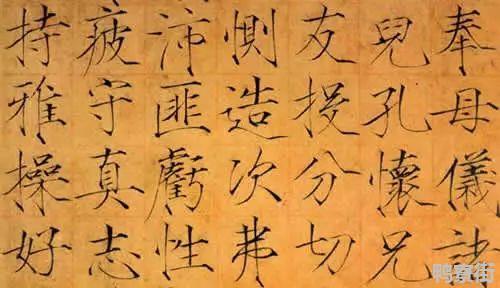 奉母儀諸
兒孔懷兄
友投分切
惻造次弗
沛匪虧性
疲守真志
持雅操好
鸭寮街